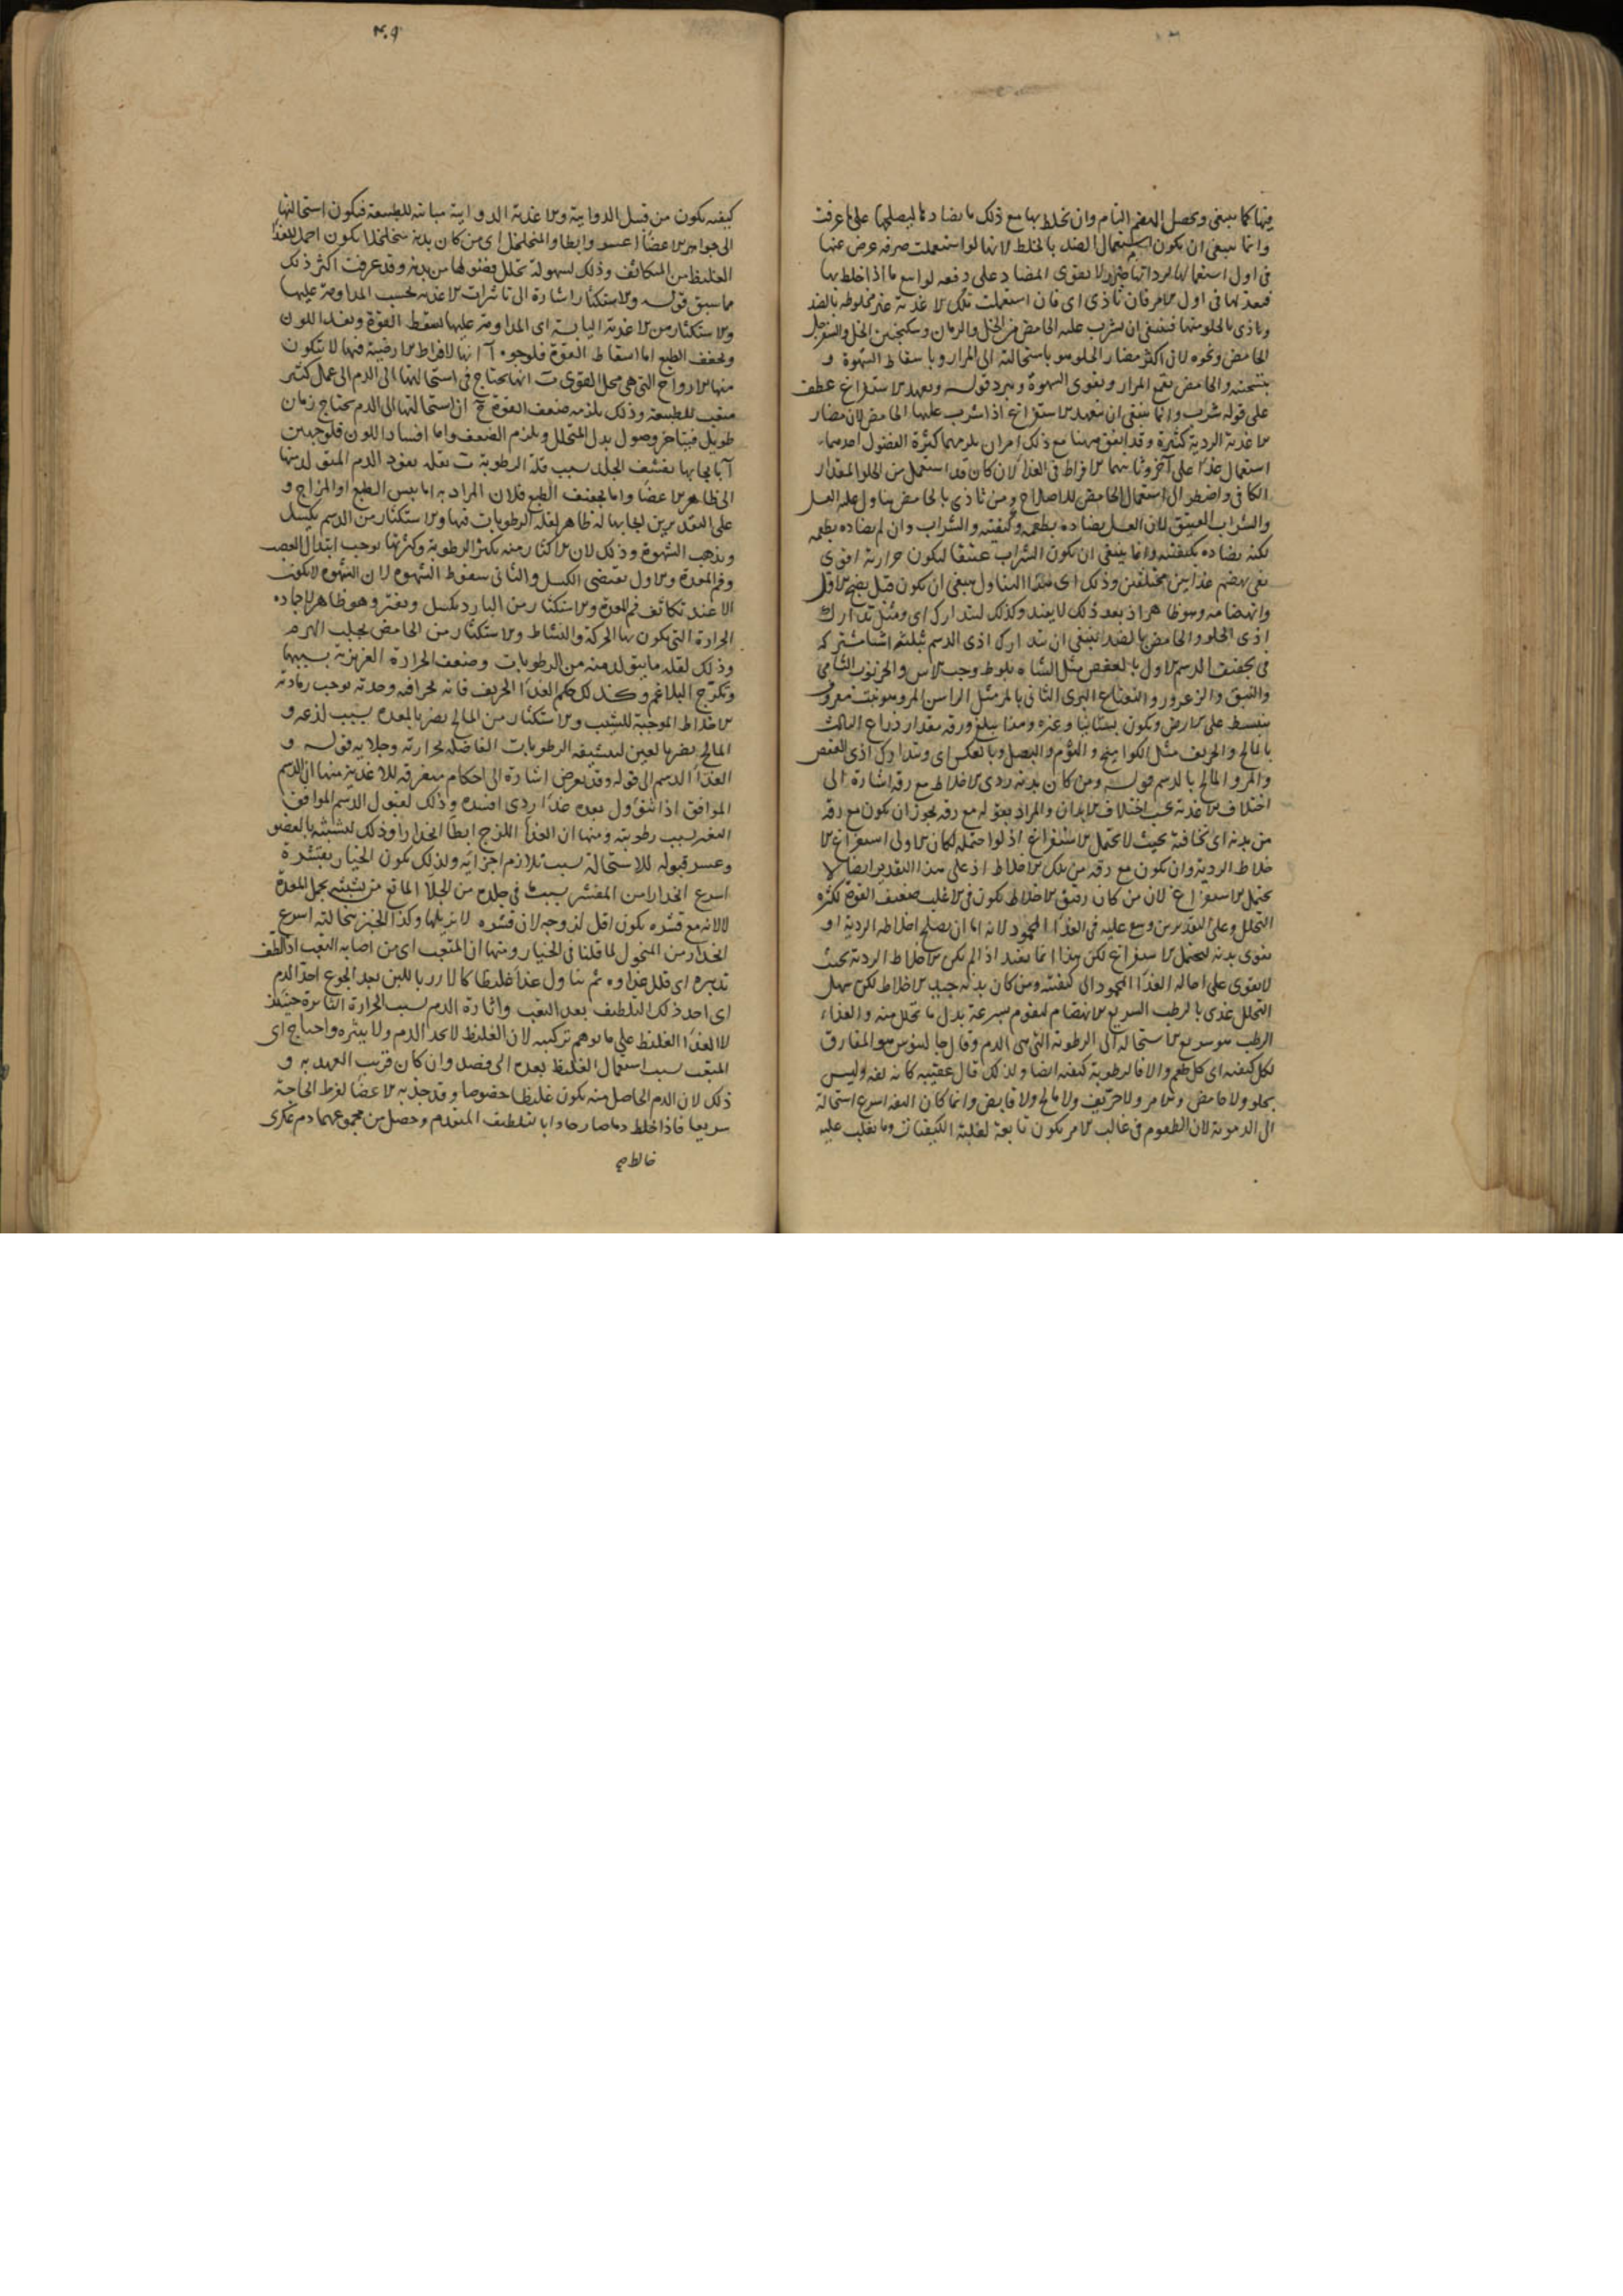 فيها كما ينبغى ويحصل الهضم التام وان تخلط بها مع ذلك ما يضادها ليصلحها على ما عرفت
وانما ينبغى ان يكون استعمال الضد بالخلط لانها لو استعملت صرفه عرض عنها
فى اول استعمالها لا يقوى المضاد على دفعه لو اسع ما اذا خلط بها
فى اول الامر فان تاذى اى فان استعملت تلك الاغذية غير مخلوطه بالضد
وتاذى بالحلو منها فينبغى ان يشرب عليه الحامض من الخل والرمان وسكنجبين الخل والسفرجل
الحامض ونحوه لان اكثر مضار الحلو هو باستحالته الى المرار وباسقاط الشهوة و
والحامض يقمع المرار ويقوى الشهوة ويبرد قوله ويعهد الاستفراغ عطف
على قوله شرب وانما ينبغى ان يتعهد الاستفراغ اذا شرب عليها الحامض لان مضار
الاغذية الردية كثيرة وقد اتفق ههنا مع ذلك امران يلزمهما كثرة الفضول احدهما
استعمال غذاء على آخر وثانيهما الافراط فى الغذاء لان كان قد استعمل من الحلو المقدار
الكافى واضطر الى استعمال الحامض للاصلاح ومن تاذى بالحامض يتناول عليه العسل
والشراب العتيق لان العسل يضاده بطعمه وكيفيته والشراب وان لم يضاده بطعمه
لكنه يضاده بكيفيته وانما ينبغى ان يكون الشراب عتيقا ليكون حرارته اقوى
هضم غذايين مختلفين وذلك اى هذا التناول ينبغى ان يكون قبل نضج الاول
وانهضامه وهو ظاهر اذ بعد ذلك لا يفيد وكذلك ليتدارك اى ومثل تدارك
اذى الحلو والحامض بالضد ينبغى ان يتدارك اذى الدسم بثلثه اشيا مشتركه
فى تجفيف الدسم الاول بالعفص مثل الشاه بلوط وحب الاس والخرنوب الشامى
والنبق والزعرور والنعناع البرى الثانى بالمر مثل الراسن المر وهو نبت معروف
ينبسط على الارض ويكون بستانيا وغيره وهذا يبلغ ورقه مقدار ذراع الثالث
بالمالح والحريف مثل الكواميخ و الثوم والبصل وبالعكس اى ويتدارك اذى العفص
والمر والمالح بالدسم قوله ومن كان بدنه ردى الاخلاط مع رقه اشارة الى
اختلاف الاغذية بحسب اختلاف الابدان والمراد بقوله مع رقه يجوز ان يكون مع رقة
من بدنه اى نحافته بحيث لا يحتمل الاستفراغ اذ لو احتمله لكان الاولى استفراغ الا
خلاط الردية وان يكون مع رقه من تلك الاخلاط اذ على هذا التقدير ايضا لا
يحتمل الاستفراغ لان من كان رقيق الاخلاط يكون فى الاغلب ضعيف القوة لكثره
التحلل وعلى التقديرين وسع عليه فى الغذاء المحمود لانه اما ان يصلح اخلاطه الردية او
يقوى بدنه ليحتمل الاستفراغ لكن هذا انما يفيد اذا لم يكن الاخلاط الردية بحيث
لا يقوى على احاله الغذاء المحمود الى كيفيته ومن كان بدنه جيد الاخلاط لكن سهل
التحلل غذى بالرطب السريع الانهضام ليقوم بسرعة بدل ما تحلل منه والغذاء
الرطب هو سريع الاستحالة الى الرطوبة التى هى الدم وقال جالينوس هو المفارق
لكل كيفيه اى كل طعم والا فالرطوبة كيفيه ايضا ولذلك قال عقيبه كانه تفه وليس
بحلو ولا حامض ولا مر ولا حريف ولا مالح ولا قابض وانما كان التفه اسرع استحالة
الى الدموية لان الطعوم فى غالب الامر يكون تابعة لغلبة الكيفيات وما يغلب عليه
٣٠٩
كيفيه يكون من قبيل الدوايية والاغذية الدوايية مباينه للطبيعة فيكون استحالتها
الى جواهر الاعضا اعسر وابطا والمتخلخل اى من كان بدنه متخلخلا يكون احمل للغذا
الغليظ من المتكاثف وذلك لسهولة تحلل فضولها من بدنه وقد عرفت اكثر ذلك
مما سبق قوله والاستكثار اشارة الى تاثيرات الاغذية بحسب المداومة عليها
والاستكثار من الاغذية اليابسة اى المداومة عليها يسقط القوة ويفسد اللون
ويجفف الطبع اما اسقاط القوة فلوجوه آ انها لافراط الارضية فيها لا يتكون
منها الارواح التى هى محل القوى ب انها يحتاج فى استحالتها الى الدم الى عمل كثير
متعب للطبيعة وذلك يلزمه ضعف القوة ج ان استحالتها الى الدم يحتاج زمان
طويل فيتاخر وصول بدل المتحلل ويلزم الضعف واما افساد اللون فلوجهين
آ بايجابها تقشف الجلد بسبب قلة الرطوبة ب تقله نفوذ الدم المتولد منها
الى ظاهر الاعضا واما تجفيف الطبع فلان المراد به اما يبس الطبع او المزاج و
على التقديرين ايجابها له ظاهر لقلة الرطوبات فيها والاستكثار من الدسم يكسل
ويذهب الشهوة وذلك لان الاكثار منه يكثر الرطوبة وكثرتها يوجب ابتلال العصب
وفم المعدة والاول يقتضى الكسل والثانى سقوط الشهوة لان الشهوة لا يكون
الا عند تكاثف فم المعدة والاستكثار من البارد يكسل ويفتر وهو ظاهر لاخماده
الحرارة التى يكون بها الحركة والنشاط والاستكثار من الحامض يجلب الهرم
وذلك لقله ما يتولد منه من الرطوبات وضعف الحرارة الغريزية بسببها
البلاغم وكذلك حكم الغذا الحريف فانه لحرافته وحدته يوجب رمادية
الاخلاط الموجبة للشيب والاستكثار من المالح يضر بالمعده بسبب لذعه و
المالح يضر بالعين لتنشيفه الرطوبات الفاضله لحرارته وجلايه قوله و
الغذا الدسم الى قوله وقد يعرض اشارة الى احكام متفرقه للاغذية منها ان الدسم
الموافق اذا تنوول بعده غذا ردى افسده وذلك لقبول الدسم الموافق
التغير بسبب رطوبته ومنها ان الغذا اللزج ابطا انحدارا وذلك لتشبثه بالعضو
وعسر قبوله للاستحالة بسبب تلازم اجزائه ولذلك يكون الخيار بقشره
اسرع انحدارا من المقشر بسبب فى جلده من الجلا المانع من تشبثه بخمل المعدة
لا لانه مع قشره يكون اقل لزوجه لان قشره لا يزيلها وكذا الخبز بنخالته اسرع
انحدارا من المنخول لما قلنا فى الخيار ومنها ان المتعب اى من اصابه التعب اذا لطف
تدبيره اى قلل غذاوه ثم تناول غذا غليظا كالارز باللبن بعد الجوع احد الدم
اى احد ذلك التلطيف بعد التعب واثارة الدم بسبب الحرارة الثايرة حينئذ
لا الغذا الغليظ على ما توهم تركيبه لان الغليظ لا يحد الدم ولا يثيره واحتاج اى
المتعب بسبب استعمال الغليظ بعده الى فصد وان كان قريب العهد به و
ذلك لان الدم الحاصل منه يكون غليظا خصوصا وقد جذبه الاعضا لفرط الحاجة
سريعا فاذا خلط دما صار حادا بالتلطيف المتقدم وحصل من مجموعهما دم عكرى